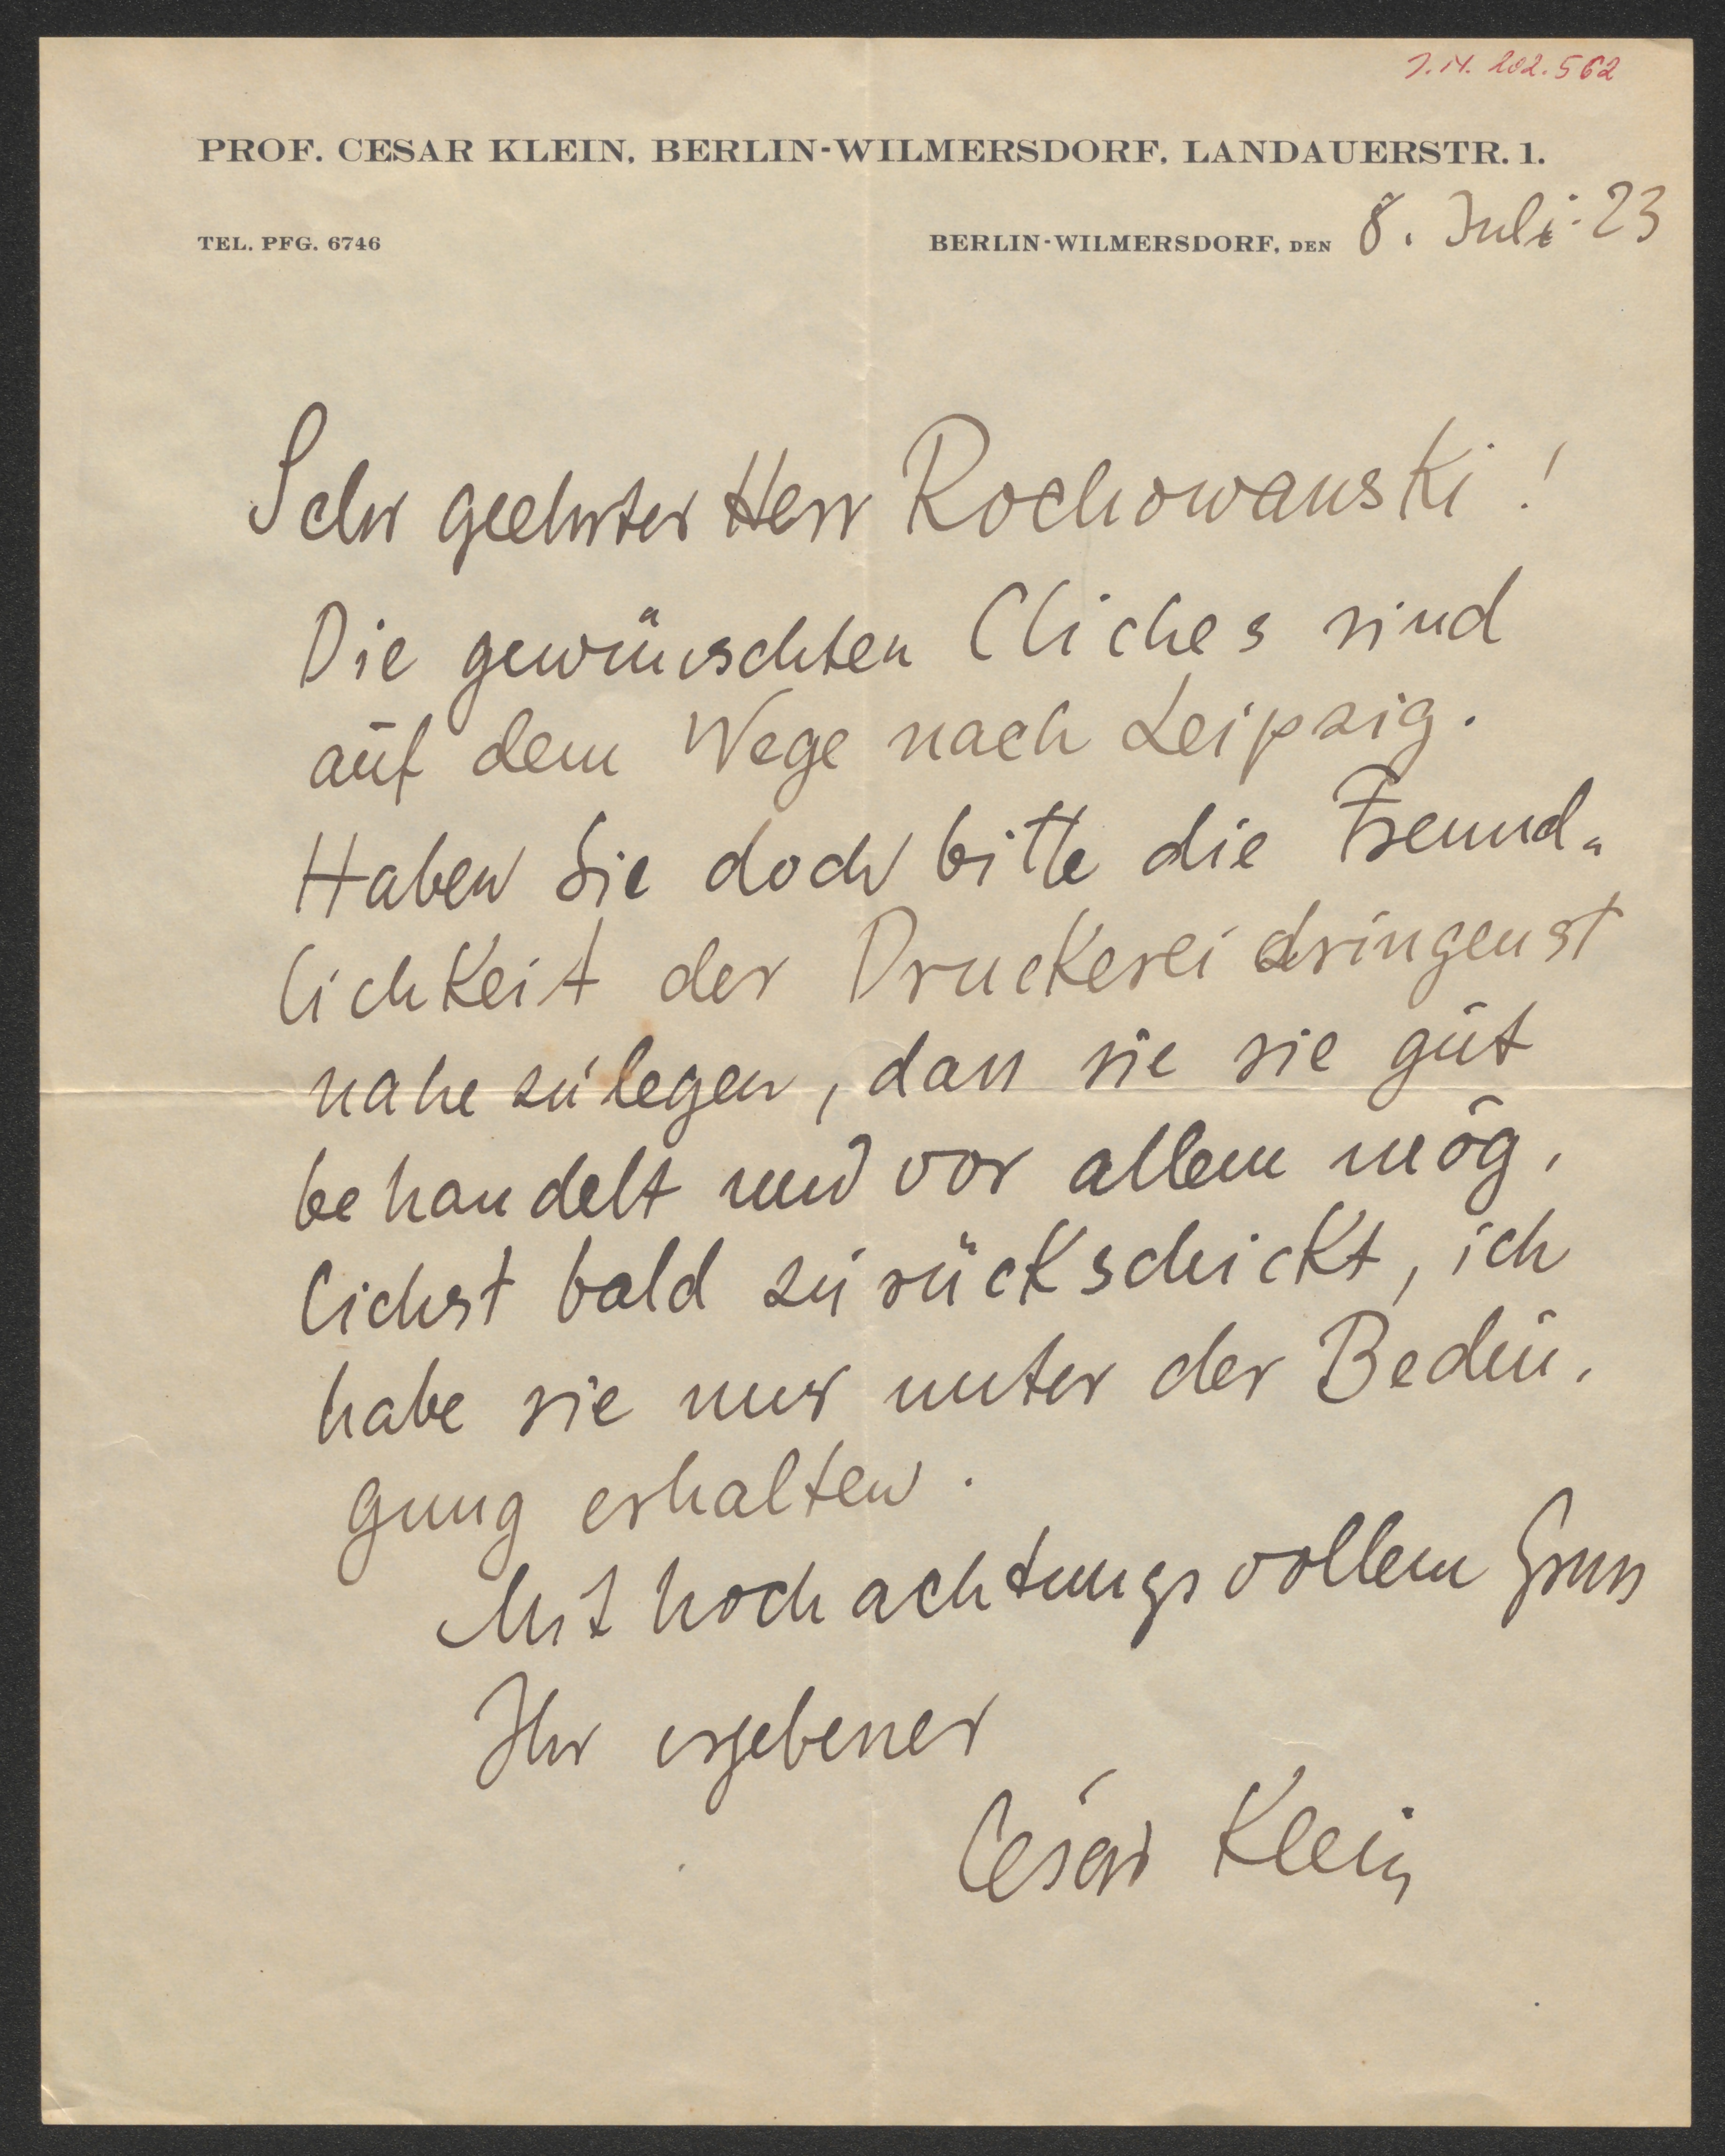 J.N. 202.562
PROF. CESAR KLEIN, BERLIN-WILMERSDORF, LANDAUERSTR. 1.
TEL. PFG. 6746
BERLIN-WILMERSDORF, DEN 8. Juli 23
Sehr geehrter Herr Rochowanski!
Die gewünschten Cliches sind
auf dem Wege nach Leipzig.
Haben Sie doch bitte die Freund-
lichkeit der Druckerei dringenst
nahe zulegen, dass sie sie gut
behandelt und vor allem mög-
lichst bald zurückschickt, ich
habe sie nur unter der Bedin-
gung erhalten.
Mit hochachtungsvollem Gruss
Ihr ergebener
César Klein